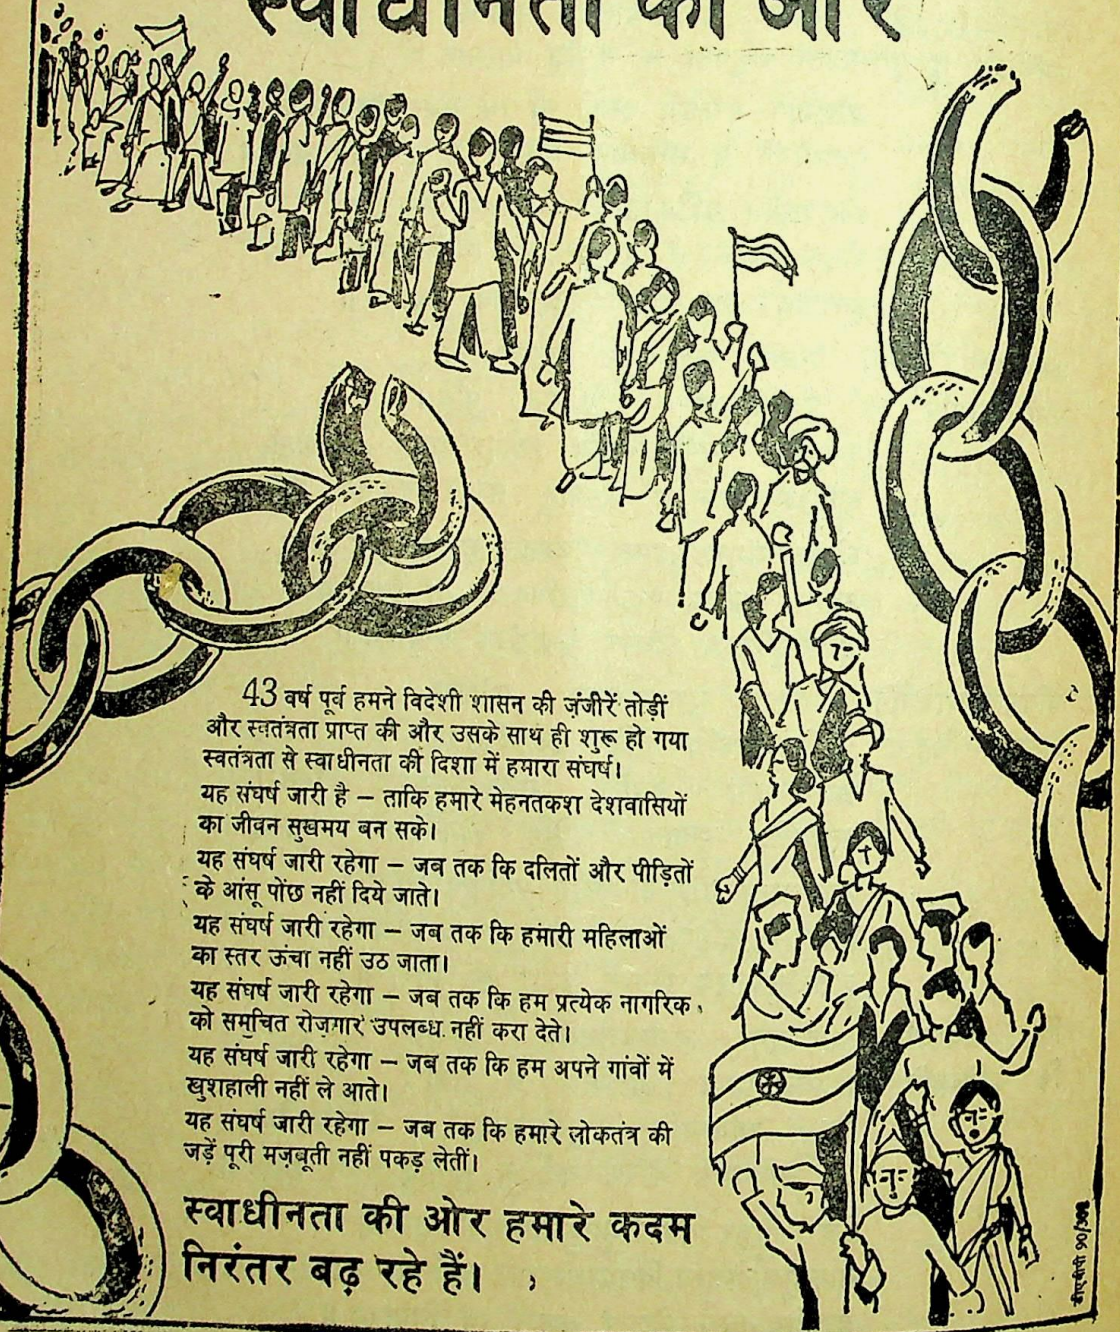 स्वाधीनता की ओर
43 वर्ष पूर्व हमने विदेशी शासन की ज़ंजीरें तोड़ीं
और स्वतंत्रता प्राप्त की और उसके साथ ही शुरू हो गया
स्वतंत्रता से स्वाधीनता की दिशा में हमारा संघर्ष।
यह संघर्ष जारी है – ताकि हमारे मेहनतकश देशवासियों
का जीवन सुखमय बन सके।
यह संघर्ष जारी रहेगा – जब तक कि दलितों और पीड़ितों
के आंसू पोंछ नहीं दिये जाते।
यह संघर्ष जारी रहेगा – जब तक कि हमारी महिलाओं
का स्तर ऊंचा नहीं उठ जाता।
यह संघर्ष जारी रहेगा – जब तक कि हम प्रत्येक नागरिक
को समुचित रोज़गार उपलब्ध नहीं करा देते।
यह संघर्ष जारी रहेगा – जब तक कि हम अपने गांवों में
खुशहाली नहीं ले आते।
यह संघर्ष जारी रहेगा – जब तक कि हमारे लोकतंत्र की
जड़ें पूरी मज़बूती नहीं पकड़ लेतीं।
स्वाधीनता की ओर हमारे कदम
निरंतर बढ़ रहे हैं।
डीएवीपी